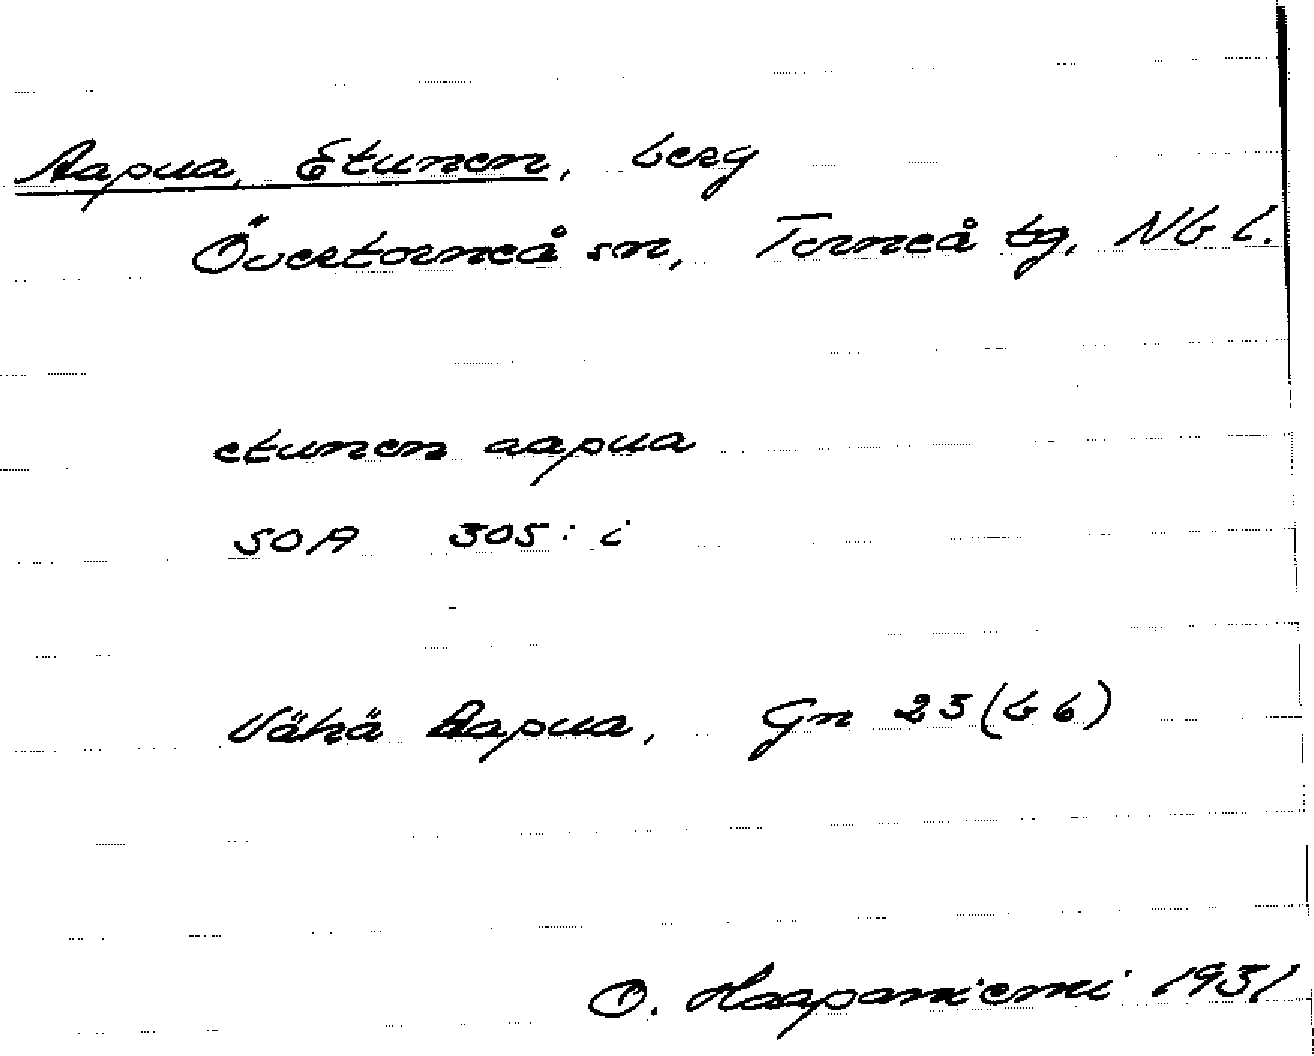 Aapua, Etunen, berg
Övertorneå sn, Torneå tg, NB l.
etunen aapua
SOA 305: i
Vähä Aapua, Gn 23 (b 6)
O. Haapaniemi 1931